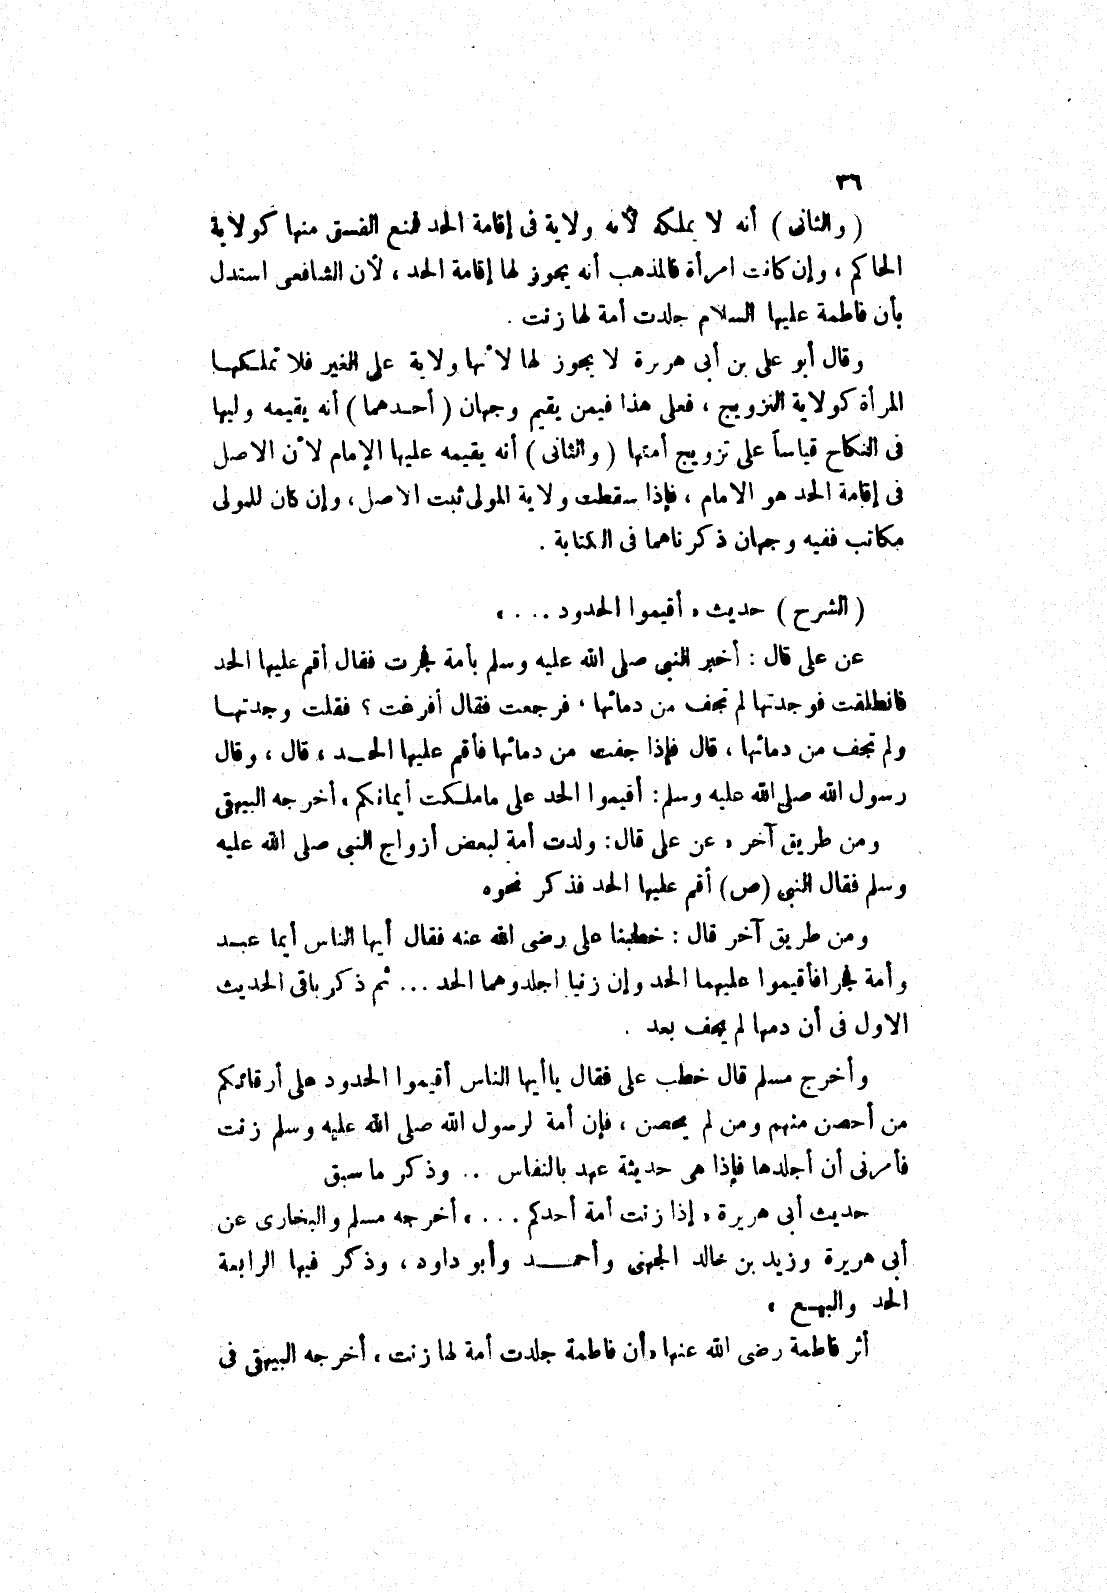 ٣٦
( والثانى ) أنه لا يملكه لأنه ولاية فى إقامة الحد فمنع الفسق منها كولاية
الحاكم ، وإن كانت امرأة فالمذهب أنه يجوز لها إقامة الحد ، لأن الشافعى استدل
بأن فاطمة عليها السلام جلدت أمة لها زنت .
وقال أبو على بن أبى هريرة لا يجوز لها لأنها ولاية على الغير فلا تملكها
المرأة كولاية التزويج ، فعلى هذا فيمن يقيم وجهان ( أحدهما ) أنه يقيمه وليها
فى النكاح قياساً على تزويج أمتها ( والثانى ) أنه يقيمه عليها الإمام لأن الاصل
فى إقامة الحد هو الامام ، فإذا سقطت ولاية المولى ثبت الاصل ، وإن كان للمولى
مكاتب ففيه وجهان ذكرناهما فى الكتابة .
( الشرح ) حديث « أقيموا الحدود ... »
عن على قال : أخبر النبى صلى الله عليه وسلم بأمة فجرت فقال أقم عليها الحد
فانطلقت فوجدتها لم تجف من دمائها ، فرجعت فقال أفرغت ؟ فقلت وجدتها
ولم تجف من دمائها ، قال فإذا جفت من دمائها فأقم عليها الحد ، قال ، وقال
رسول الله صلى الله عليه وسلم : أقيموا الحد على ماملكت أيمانكم » أخرجه البيهقى
ومن طريق آخر « عن على قال : ولدت أمة لبعض أزواج النبى صلى الله عليه
وسلم فقال النبى (ص) أقم عليها الحد فذكر نحوه
ومن طريق آخر قال : خطبنا على رضى الله عنه فقال أيها الناس أيما عبد
وأمة فجرا فأقيموا عليهما الحد وإن زنيا اجلدوهما الحد ... ثم ذكر باقى الحديث
الاول فى أن دمها لم يجف بعد .
وأخرج مسلم قال خطب على فقال ياأيها الناس أقيموا الحدود على أرقائكم
من أحصن منهم ومن لم يحصن ، فإن أمة لرسول الله صلى الله عليه وسلم زنت
فأمرنى أن أجلدها فإذا هى حديثة عهد بالنفاس .. وذكر ما سبق
حديث أبى هريرة « إذا زنت أمة أحدكم ... » أخرجه مسلم والبخارى عن
أبى هريرة وزيد بن خالد الجهنى وأحمد وأبو داود ، وذكر فيها الرابعة
الحد والبيع »
أثر فاطمة رضى الله عنها « أن فاطمة جلدت أمة لها زنت » أخرجه البيهقى فى